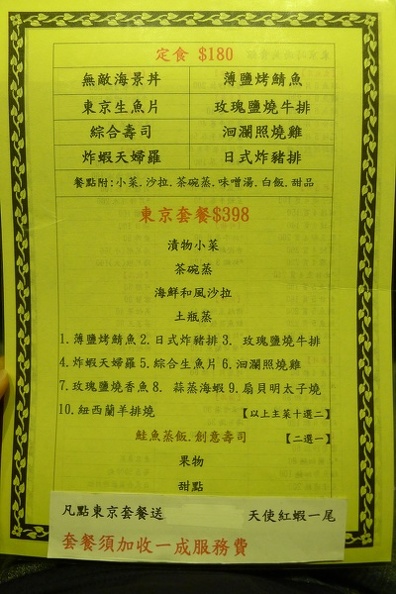 定食 $180
無敵海景丼 薄鹽烤鯖魚
東京生魚片 玫瑰鹽燒牛排
綜合壽司 洄瀾照燒雞
炸蝦天婦羅 日式炸豬排
餐點附:小菜.沙拉.茶碗蒸.味噌湯.白飯.甜品
東京套餐$398
漬物小菜
茶碗蒸
海鮮和風沙拉
土瓶蒸
1.薄鹽烤鯖魚 2.日式炸豬排 3. 玫瑰鹽燒牛排
4.炸蝦天婦羅 5.綜合生魚片 6.洄瀾照燒雞
7.玫瑰鹽燒香魚 8. 蒜蒸海蝦 9.扇貝明太子燒
10.紐西蘭羊排燒 【以上主菜十選二】
鮭魚蒸飯.創意壽司 【二選一】
果物
甜點
凡點東京套餐送 天使紅蝦一尾
套餐須加收一成服務費